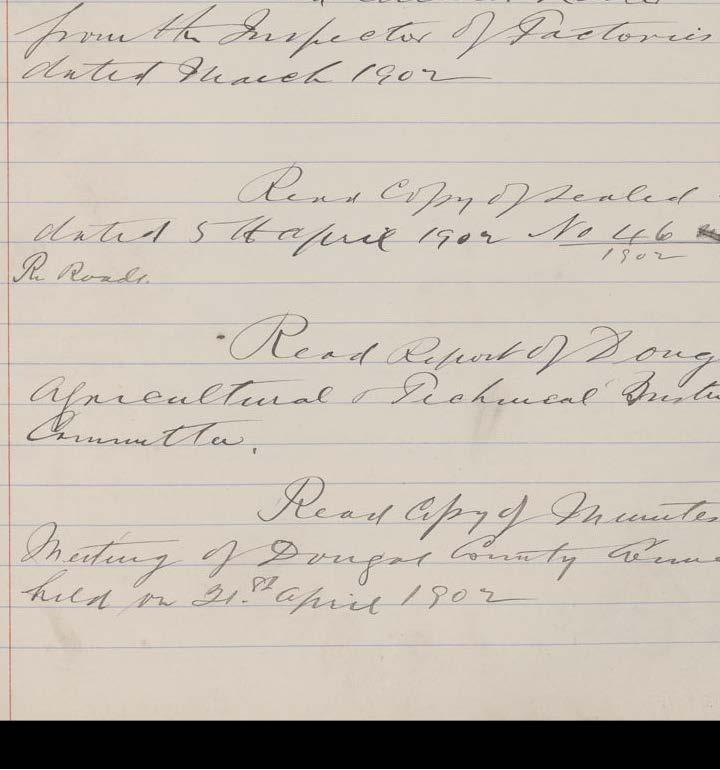 from the Inspector of Factories
dated March 1902
Read Copy of sealed
dated 5th April 1902 No 46
1902
Re Roads.
Read Report of Doneg
Agricultural & Technical Instru
Committee.
Read Copy of Minutes
Meeting of Donegal County Counc
held on 21.st April 1902